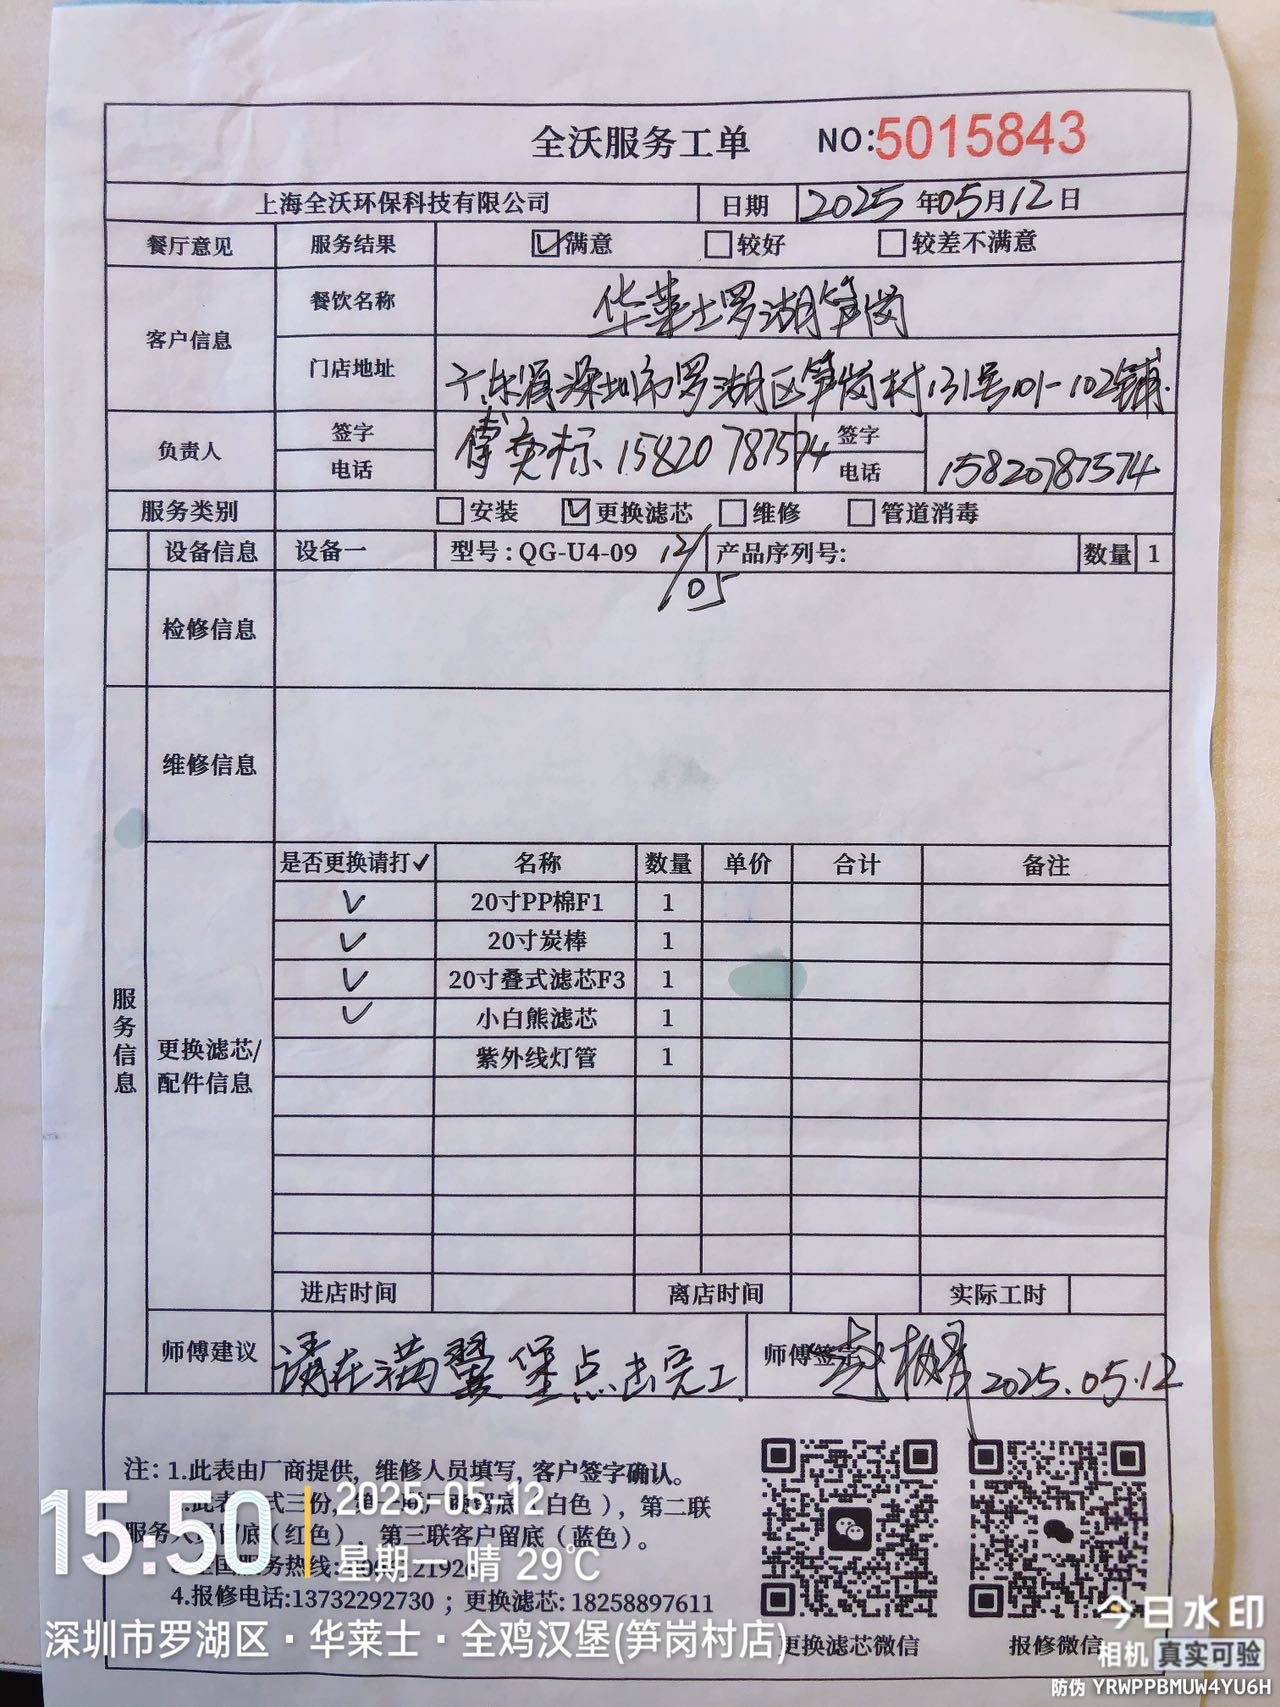 全沃服务工单 NO:5015843
上海全沃环保科技有限公司 日期 2025年05月12日
餐厅意见 服务结果 ☑满意 □较好 □较差不满意
客户信息 餐饮名称 华莱士罗湖笋岗
门店地址 广东省深圳市罗湖区笋岗村131号101-102铺.
负责人 签字 标 15820787574 签字
电话 电话 15820787574
服务类别 □安装 ☑更换滤芯 □维修 □管道消毒
设备信息 设备一 型号:QG-U4-09 12/05 产品序列号: 数量 1
检修信息
维修信息
服务信息
更换滤芯/
配件信息
是否更换请打✓ 名称 数量 单价 合计 备注
✓ 20寸PP棉F1 1
✓ 20寸炭棒 1
✓ 20寸叠式滤芯F3 1
✓ 小白熊滤芯 1
紫外线灯管 1
进店时间 离店时间 实际工时
师傅建议 请在满翼堡点击完工 师傅签字 2025.05.12
注:1.此表由厂商提供,维修人员填写,客户签字确认。
此表 式三份, 留底(白色),第二联
服务人员留底(红色),第三联客户留底(蓝色)。
全国服务热线:
4.报修电话:13732292730 ; 更换滤芯: 18258897611
更换滤芯微信 报修微信
15:50 2025-05-12
星期一 晴 29℃
深圳市罗湖区·华莱士·全鸡汉堡(笋岗村店)
今日水印
相机 真实可验
防伪 YRWPPBMUW4YU6H